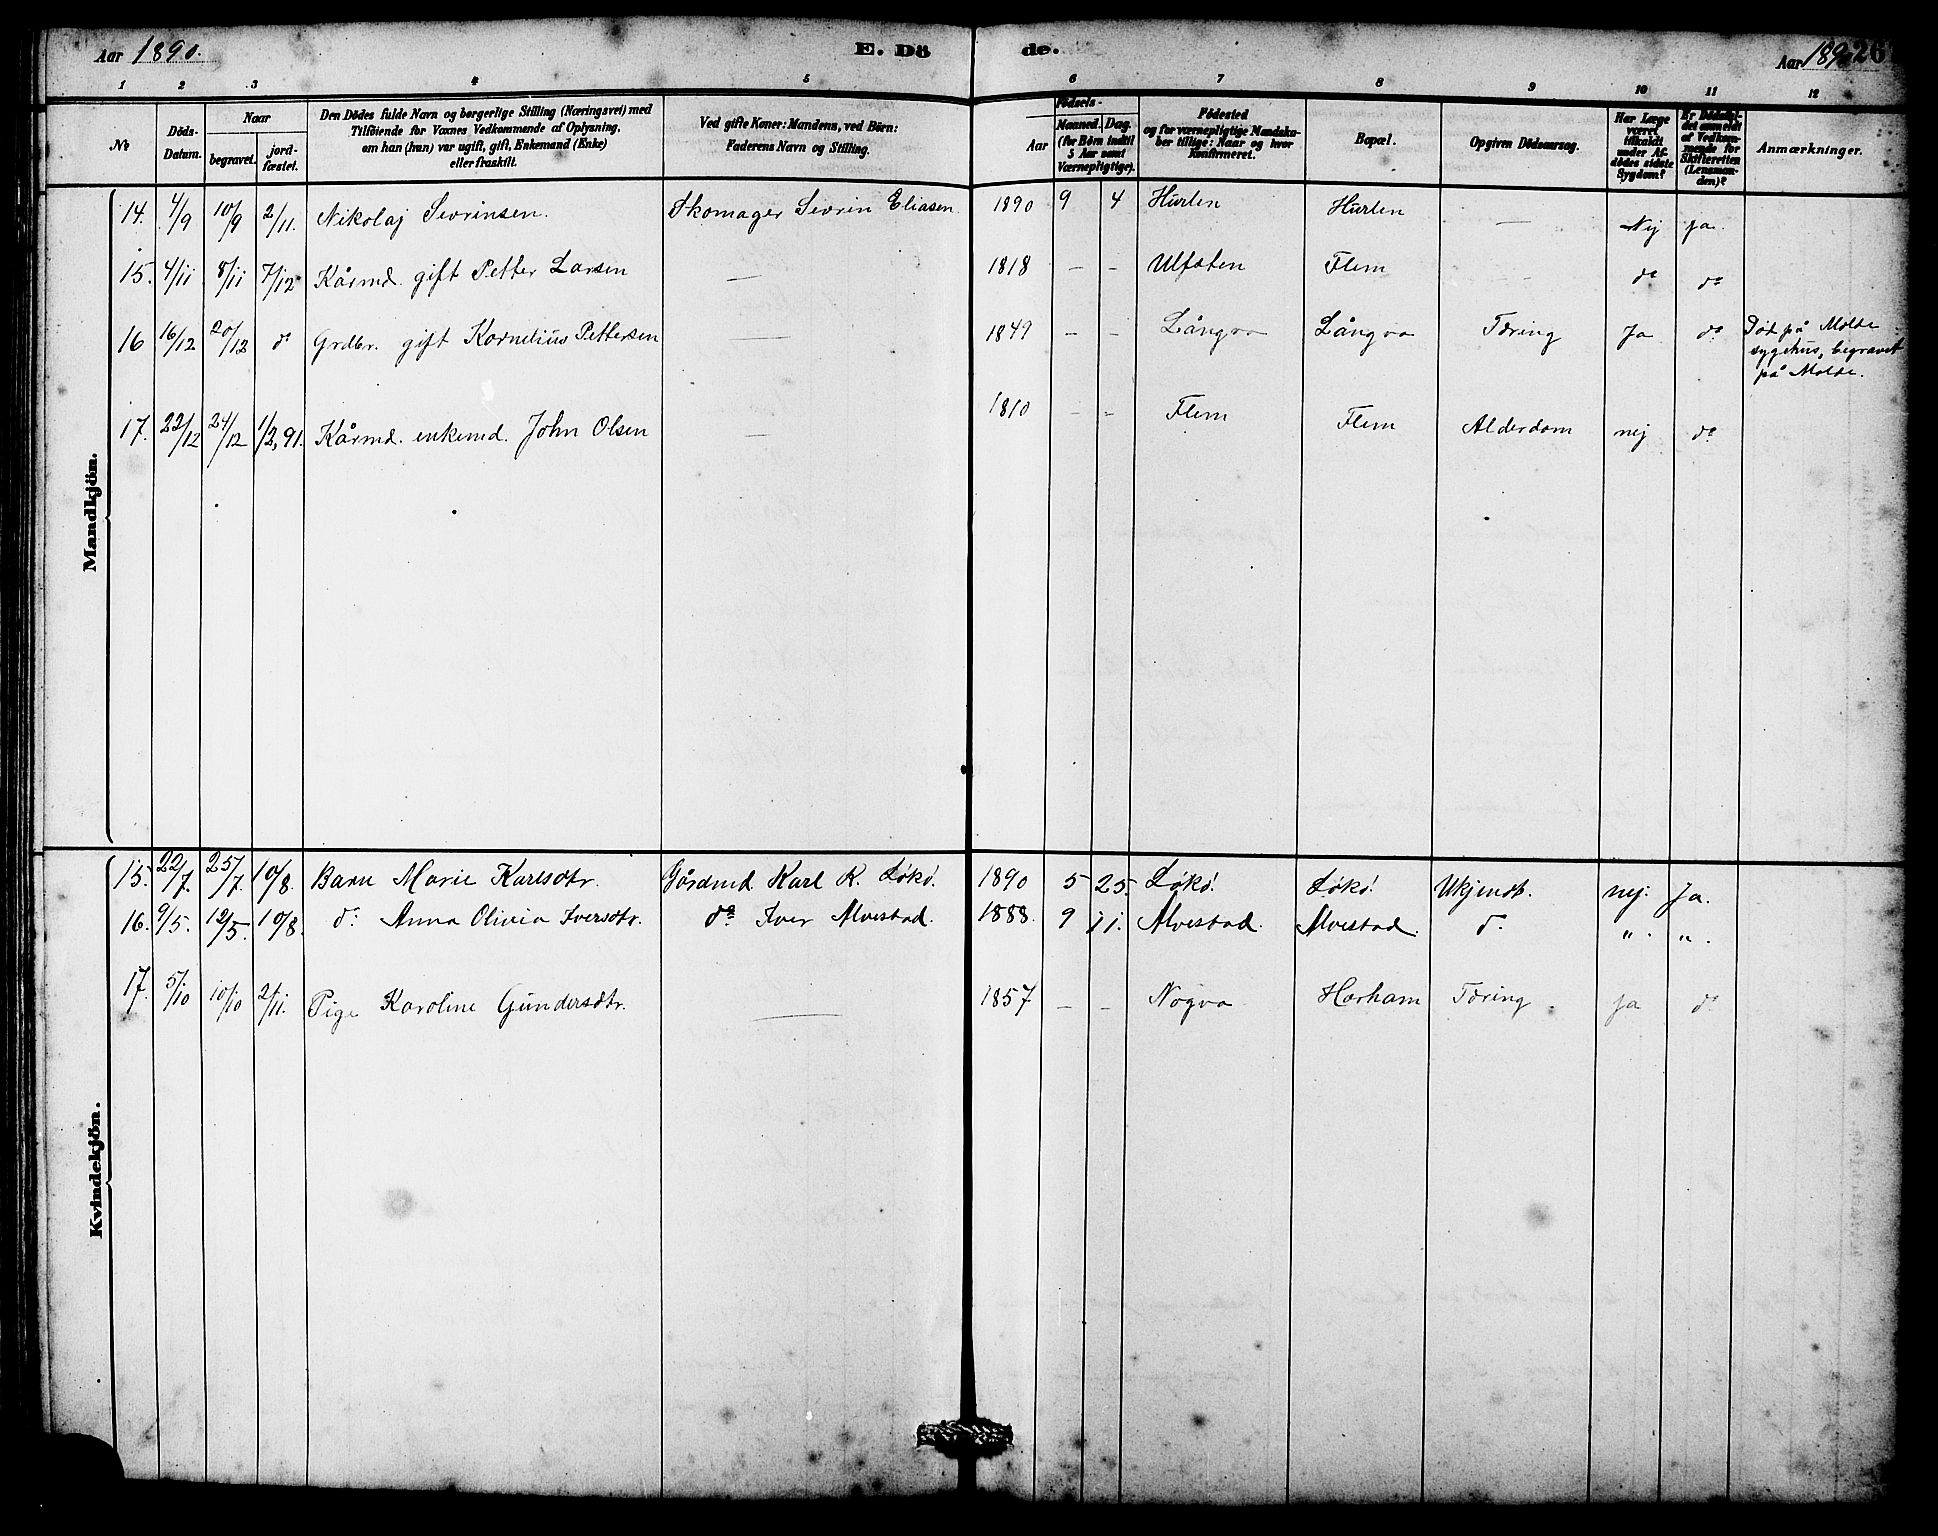 Aar 1890. E. Dö de. Aar 1890 26
1 2 3 4 5 6 7 8 9 10 11 12
No
Döds-Datum.
Naar
begravet.
jord-fæstet.
Den Dödes fulde Navn og borgerlige Stilling (Næringsvei) med
Tilföiende for Voxnes Vedkommende af Oplysning,
om han (hun) var ugift, gift, Enkemand (Enke)
eller fraskilt.
Ved gifte Koner: Mandens, ved Börn:
Faderens Navn og Stilling.
Födsels-
Aar
Maaned. Dag.
(for Börn indtil
5 Aar samt
Værnepligtige).
Födested
og for værnepligtige Mandska-
ber tillige: Naar og hvor
Konfirmeret.
Bopæl.
Opgiven Dödsaarsag.
Har Læge
været
tilkaldt
under Af-
dödes sidste
Sygdom?
Er Dödsfal-
det anmeldt
af Vedkom-
mende for
Skifteretten
(Lensman-
den)?
Anmærkninger.
Mandkjön.
14. 4/9 10/9 2/11. Nikolaj Sevrinsen. Skomager Sevrin Eliasen 1890 9 4 Hurlen Hurlen — Nej ja.
15. 4/11 8/11 7/12 Kårmd. gift Petter Larsen — 1818 – – Ulfsten Flem — do do
16 16/12 20/12 do Grdbr. gift Kornelius Pettersen — 1849 – – Långva Långva Tæring Ja do Död på Molde
sygehus, begravet
på Molde.
17. 22/12 24/12 1/2,91. Kårmd. enkemd. John Olsen — 1810 – – Flem Flem Alderdom nej do
Kvindekjön.
15. 22/7. 25/7. 10/8. Barn Marie Karlsdtr. Gårdmd. Karl K. Løkö. 1890 5 25. Løkö. Løkö. Ukjendt. nej. Ja.
16. 9/5. 12/5. 10/8. do Anna Olivia Iversdtr. do Iver Alvestad. 1888. 9 11. Alvestad. Alvestad. do " . " .
17. 5/10 10/10 2/11. Pige Karoline Gundersdtr. — 1857 – – Nogva Harham Tæring. ja do